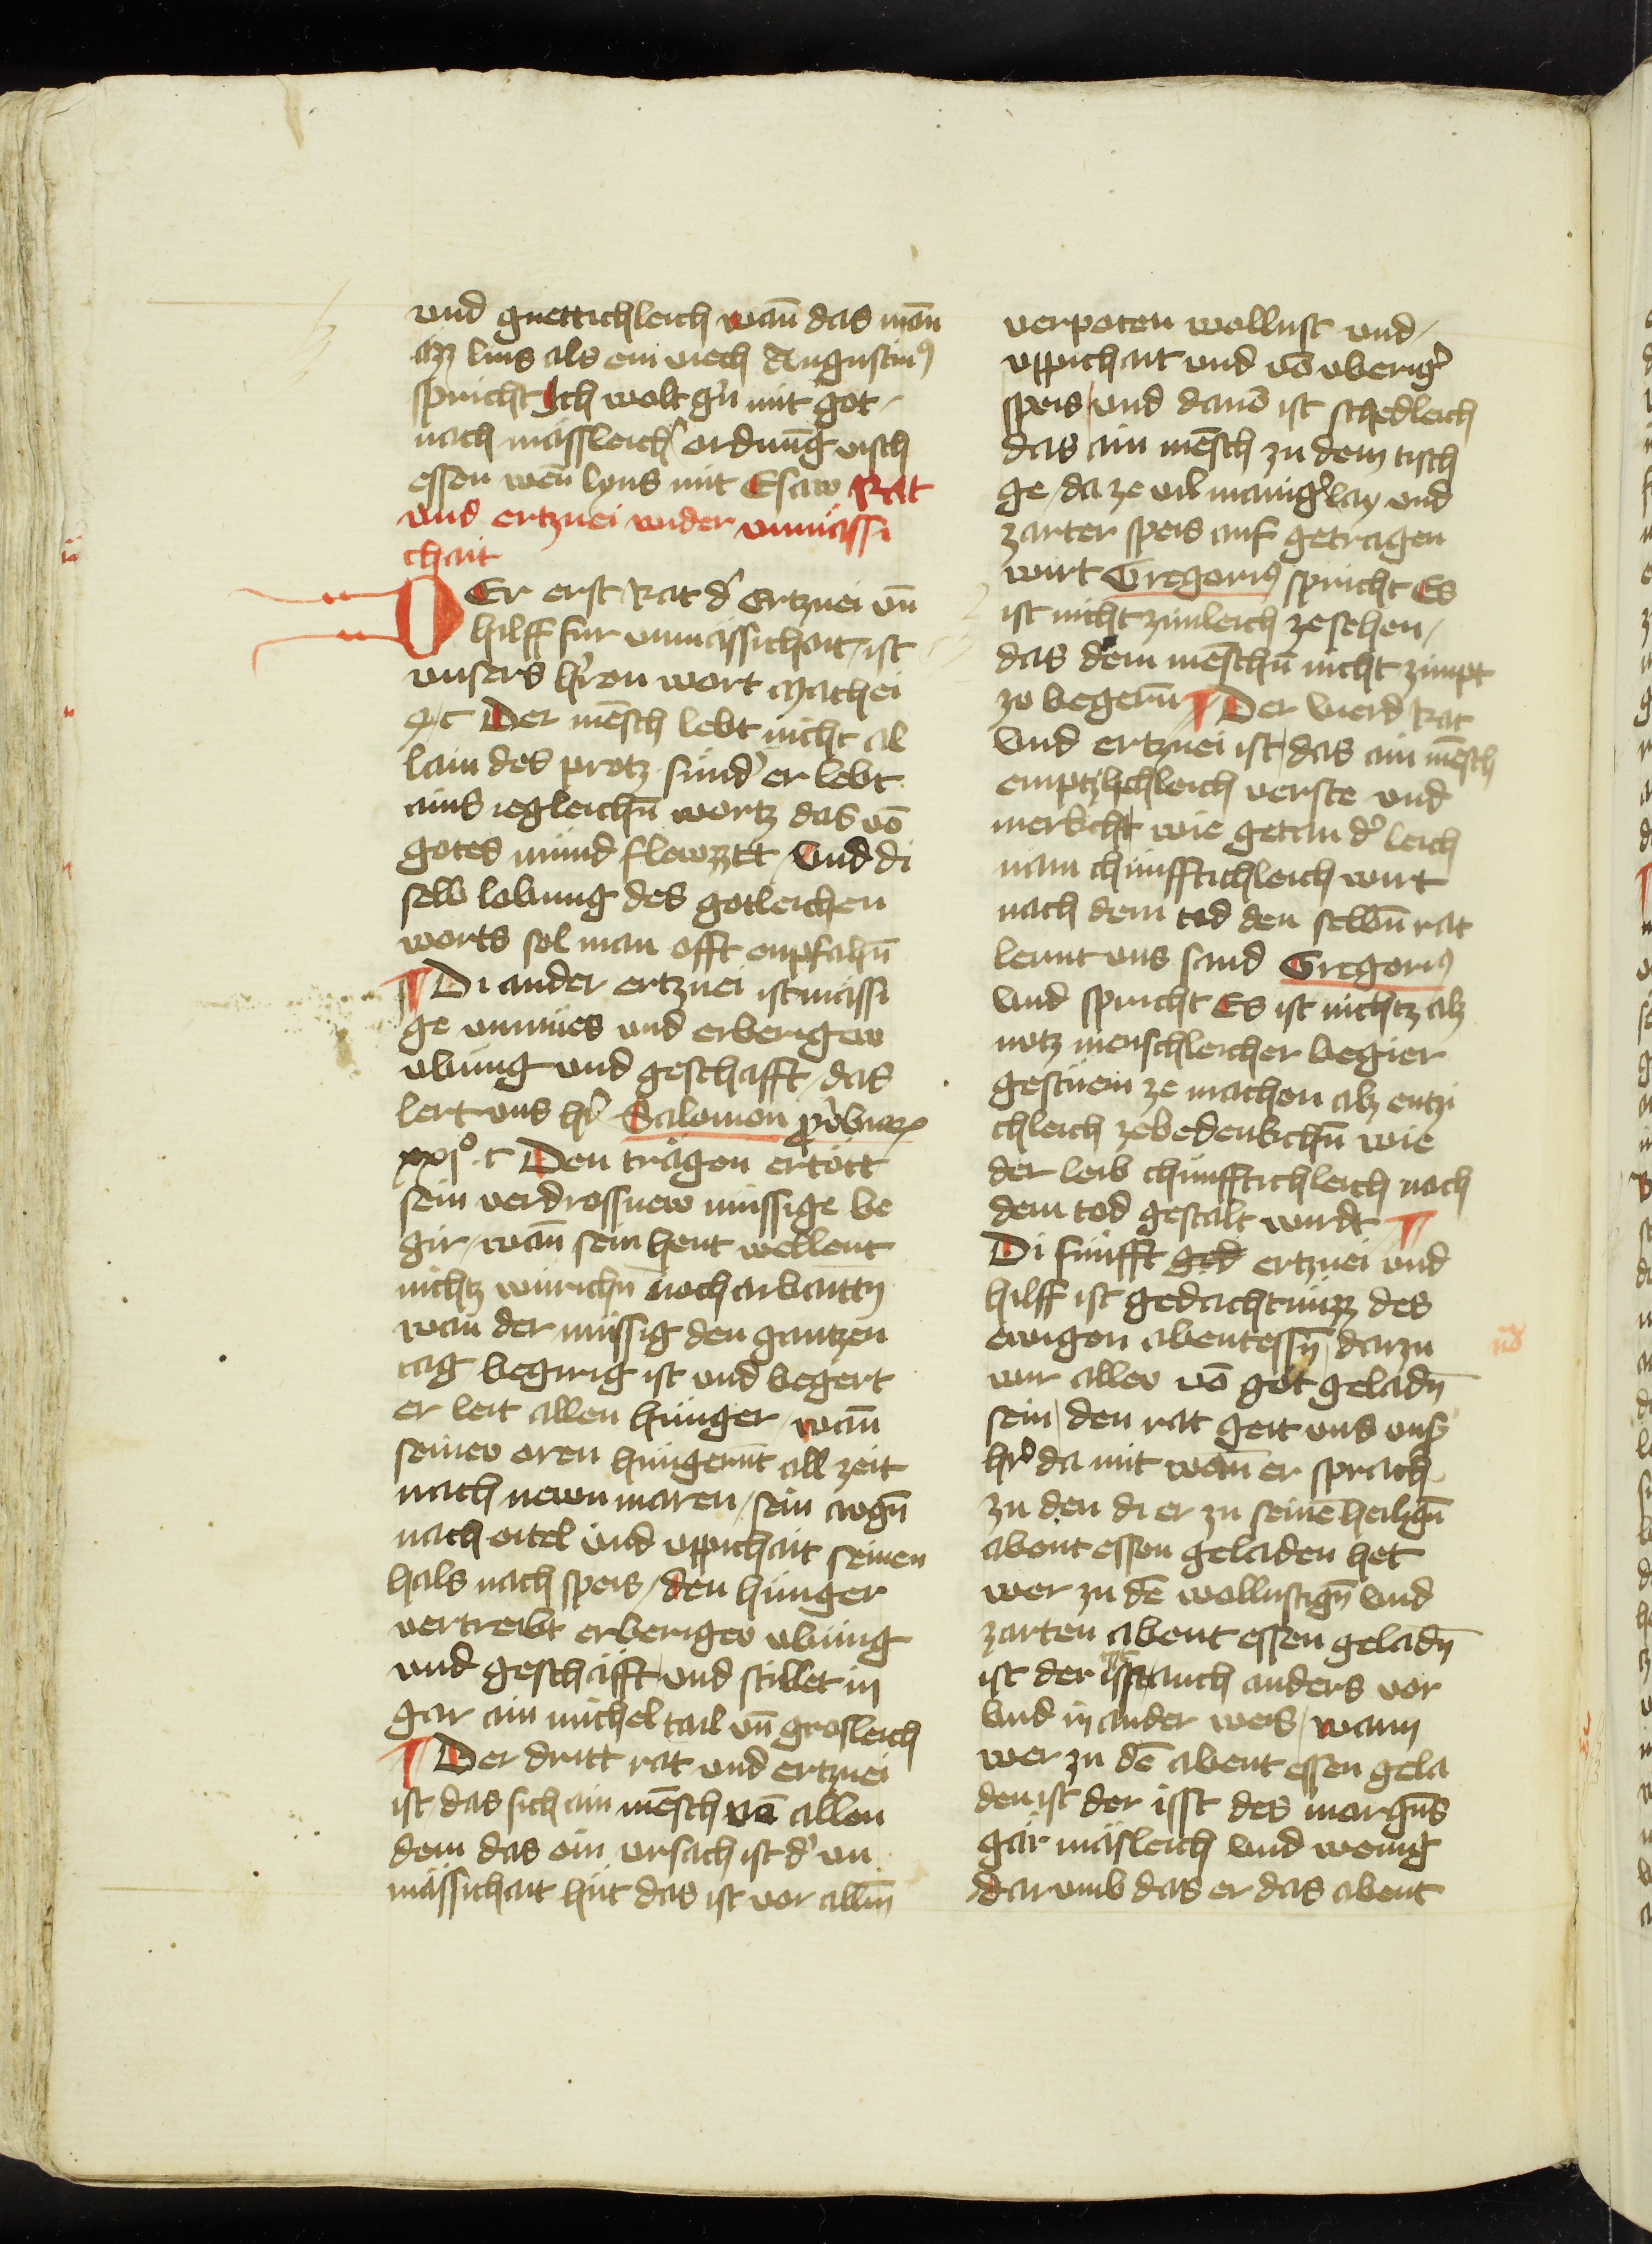 und guettichleich wan̄ das man̄
ayz lins als ein viech Augustin9
spricht Ich wolt gn̄ mit got
nach mässleich ordnūg visch
essen wen̄ lyns mit Esaw Rat
und ertznei under unmässi
chait
DEr erst Rat d' Ertznei vn̄
hilff fur unmässichait ist
unsers hr̄en wort Mathei
4 c Der mēsch lebt nicht al
lain des protz sund' er lebt
ains iegleichn̄ wortz das vō
gotes mund flewzzt Und di
selb lobung des gotleichen
worts sol man offt enpfahn̄
Di ander ertznei ist mässi
ge unmues und erberigew
ubung und geschafft das
lert uns hr̄ Salomon pro̅ver
xxjo c Den trägen ertött
sein verdrossnew müssige be
gir wan̄ sein hent wellent
nichtz würichn̄ noch arbaittn̄
wan̄ der müssig den gantzen
tag begirig ist und begert
er leit allen hunger wan̄
seinew oren hungernt all zeit
nach newn maren sein augn̄
nach eitel und uppichait seinen
hals nach speis den hunger
vertreibt erberigew ubung
und geschäfft und stillet in
gar ain michel tail vn̄ grosleich
Der dritt rat und ertznei
ist das sich ain mēsch vō allen
dem das ein ursach ist d' un
mässichait hüt das ist vor allm̄
verpoten wollust und
uppichait und vō uberig'
speis und davō ist schedleich
das ain mēsch zu dem tisch
ge da ze vil manig'lay und
zarter speis auf getragen
wirt Gregori9 spricht Es
ist nicht zimleich ze sehen
das dem mēschn̄ nicht zimpt
ze begern̄ Der vierd Rat
Und ertznei ist das ain mēsch
emptzichleich verste und
merkcht wie getan d' leich
nam chunfftichleich wirt
nach dem tod den selbn̄ rat
lernt uns sand Gregori9
Und spricht Es ist nichtz alz
nutz menschleicher begier
gestüem ze machen alz entzi
chleich ze bedenkchn̄ wie
der leib chunfftichleich nach
dem tod gestalt wirdt
Di funfft ged ertznei und
hilff ist gedachtnüzz des
ewigen abentessn̄ darzu
wir allew vō got geladn̄
sein den rat geit uns uns'
hr̄ da mit wan̄ er sprach
zu den di er zu seinē heilign̄
abent essen geladen het
wer zu dē wollustign̄ Und
zarten abent essen geladn̄
ist der isst auch anders vor
Und in ander weis wann
wer zu dē abent essen gela
den ist der isst des margn̄s
gar mäsleich und wenig
darumb das er das abent